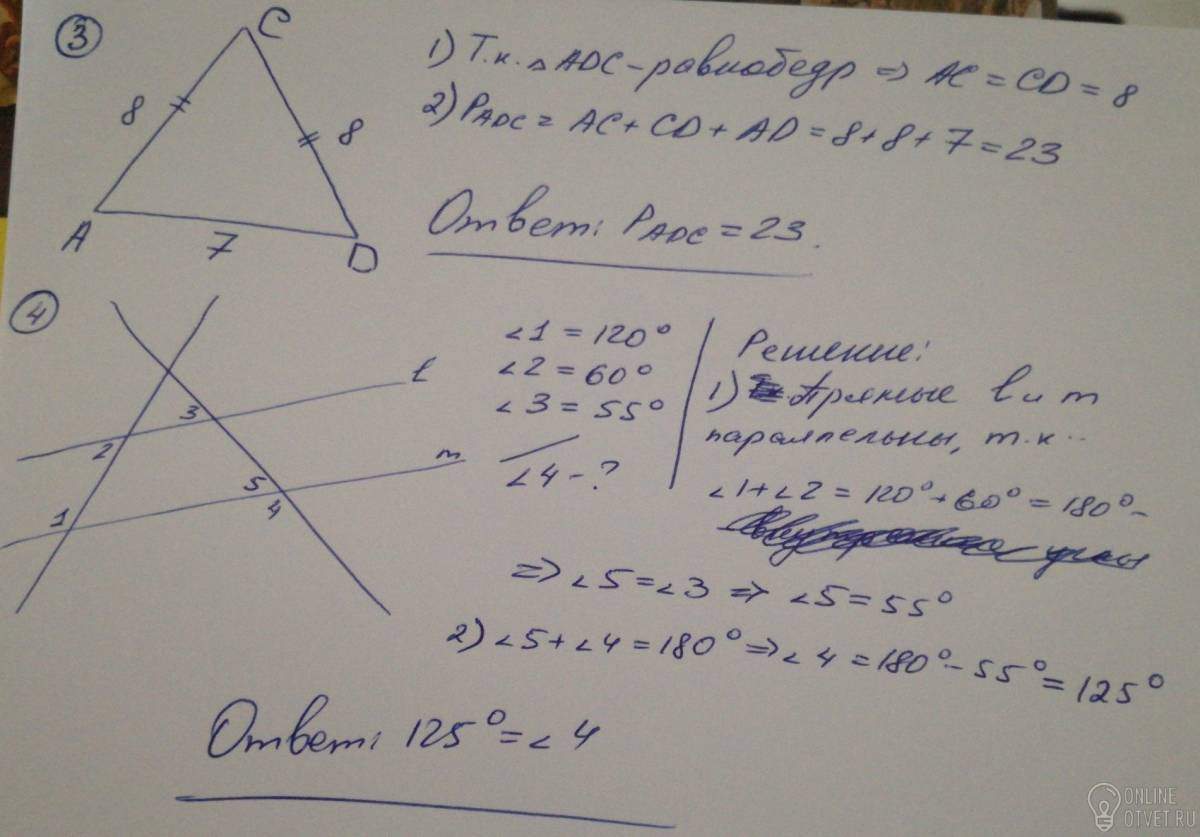 3
C
8
8
A
7
D
1) Т.к. △ADC - равнобедр => AC = CD = 8
2) PADC = AC + CD + AD = 8 + 8 + 7 = 23
Ответ: PADC = 23.
4
3
2
1
5
4
m
∠1 = 120°
∠2 = 60°
∠3 = 55°
∠4 - ?
Решение:
1) Прямые в и m
параллельны, т.к..
∠1 + ∠2 = 120° + 60° = 180° -
=> ∠5 = ∠3 => ∠5 = 55°
2) ∠5 + ∠4 = 180° => ∠4 = 180° - 55° = 125°
Ответ: 125° = ∠4
ONLINE
OTVET.RU